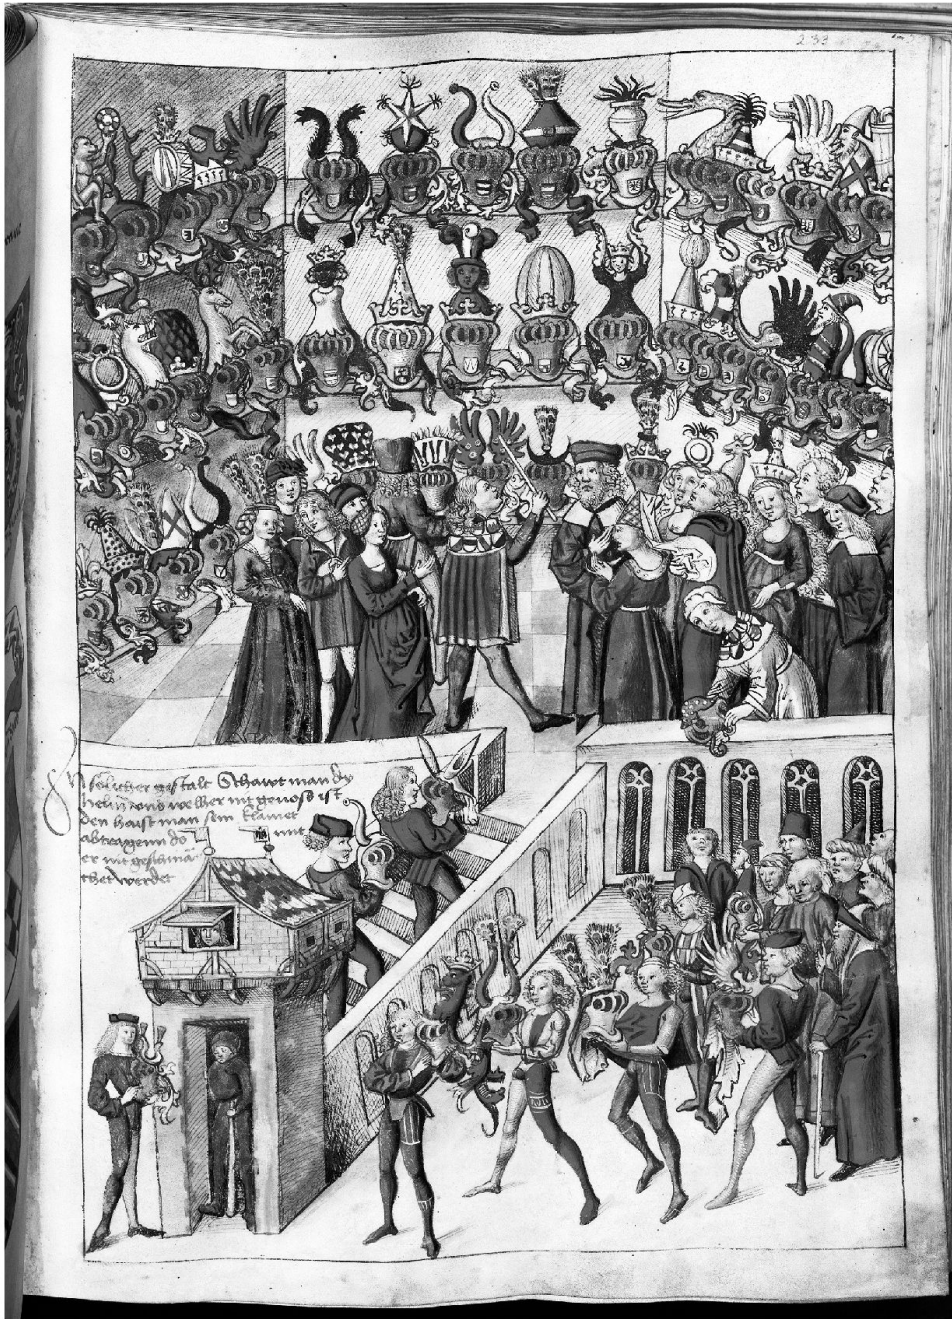 233
In sölicher gestalt Schawt man dy
helm vnd welher nit genoss ist
den haist man sein klainet
abtragenn do mit
er nit geschma
chet werdet